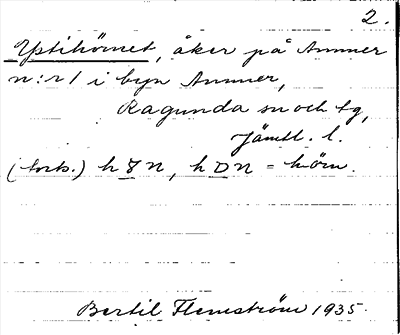 2.
Yptihörnet, åker på Ammer
n:r 1 i byn Ammer,
Ragunda sn och tg,
Jämtl. l.
(forts.) h n, h D n = hörn.
Bertil Flemström 1935.